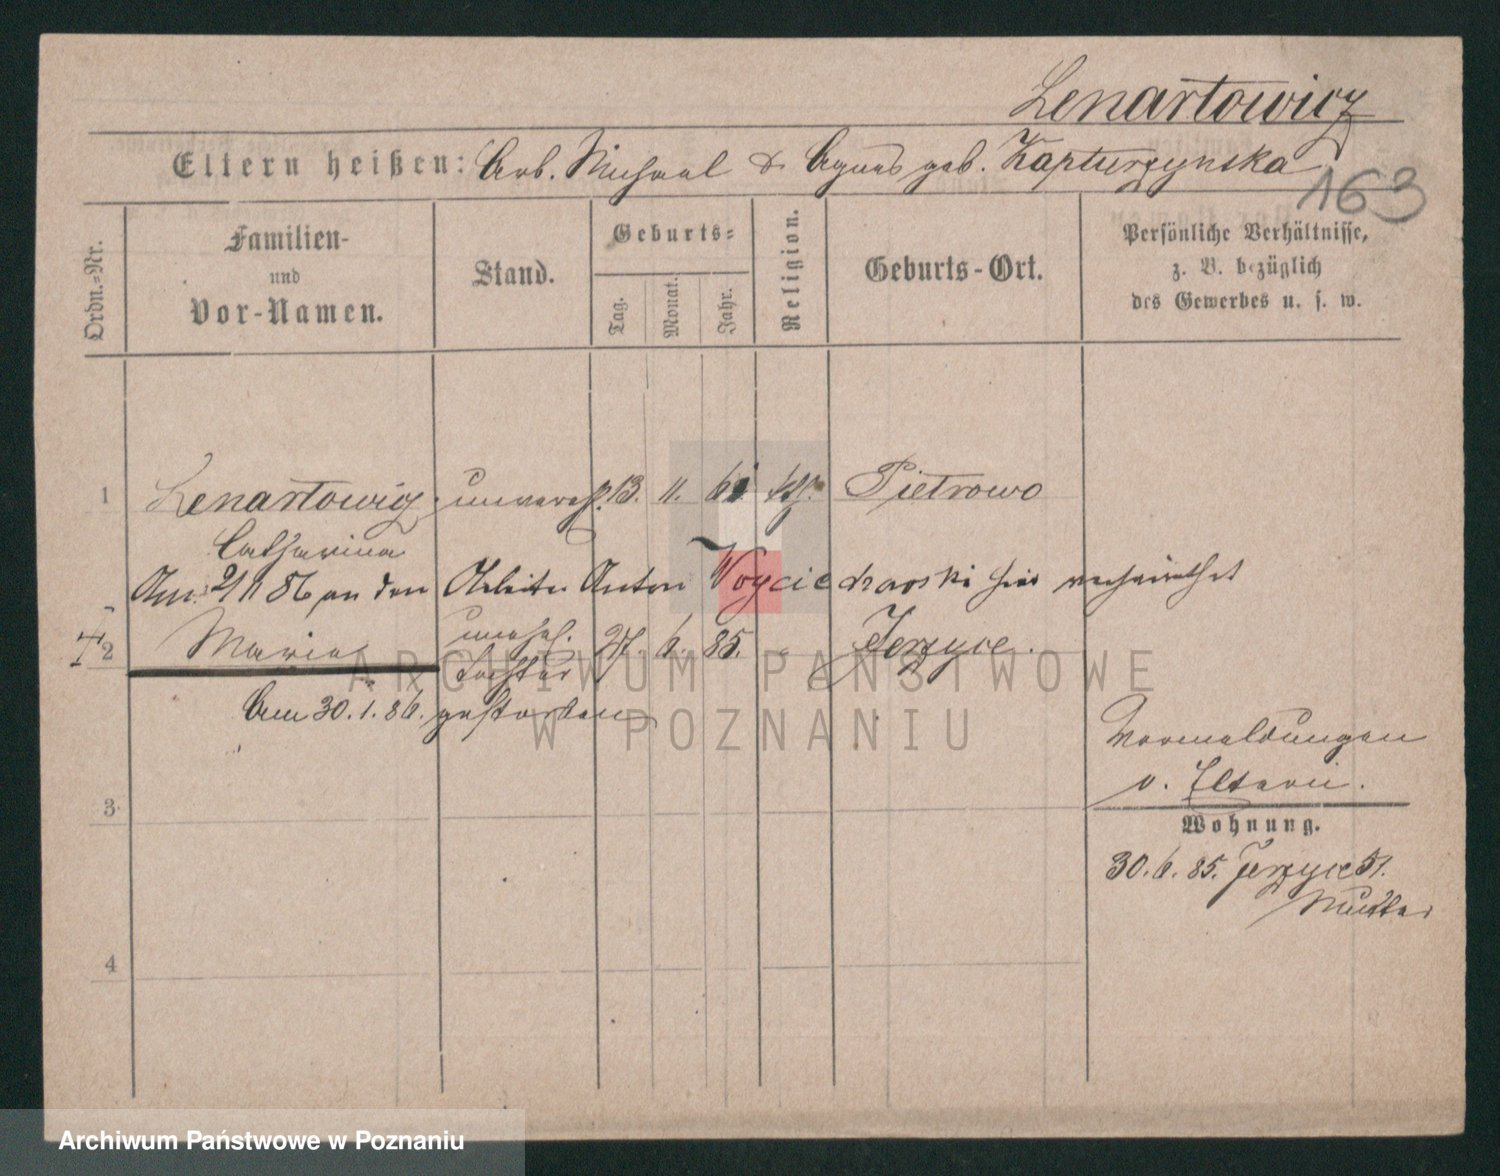 Lenartowicz
Eltern heißen: Arb. Michael & Agnes geb. Kapturzynska
163
Ordn.-Nr.
Familien-
und
Vor-Namen.
Stand.
Geburts-
Tag.
Monat.
Jahr.
Religion.
Geburts-Ort.
Persönliche Verhältnisse,
z. B. bezüglich
des Gewerbes u. s. w.
1 Lenartowicz unvereh. 13. 11. kth. Pietrowo
Catharina
Am 2/11 86 an den Arbeiter Anton Woyciechowski hier verheirathet
2 Maria unehel. 27. 6. 85. " Jerzyce.
Tochter
Am 30.1.86. gestorben
Vormeldungen
v. Eltern.
3
Wohnung.
30.6.85. Jerzyce 51.
Mutter
4
ARCHIWUM PAŃSTWOWE
W POZNANIU
Archiwum Państwowe w Poznaniu